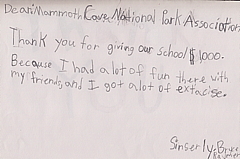 Dear Mammoth Cave National Park Association
Thank you for giving our school $1000.
Because I had a lot of fun there with
my friends and I got alot of extacise.
Sinserly, Bryce